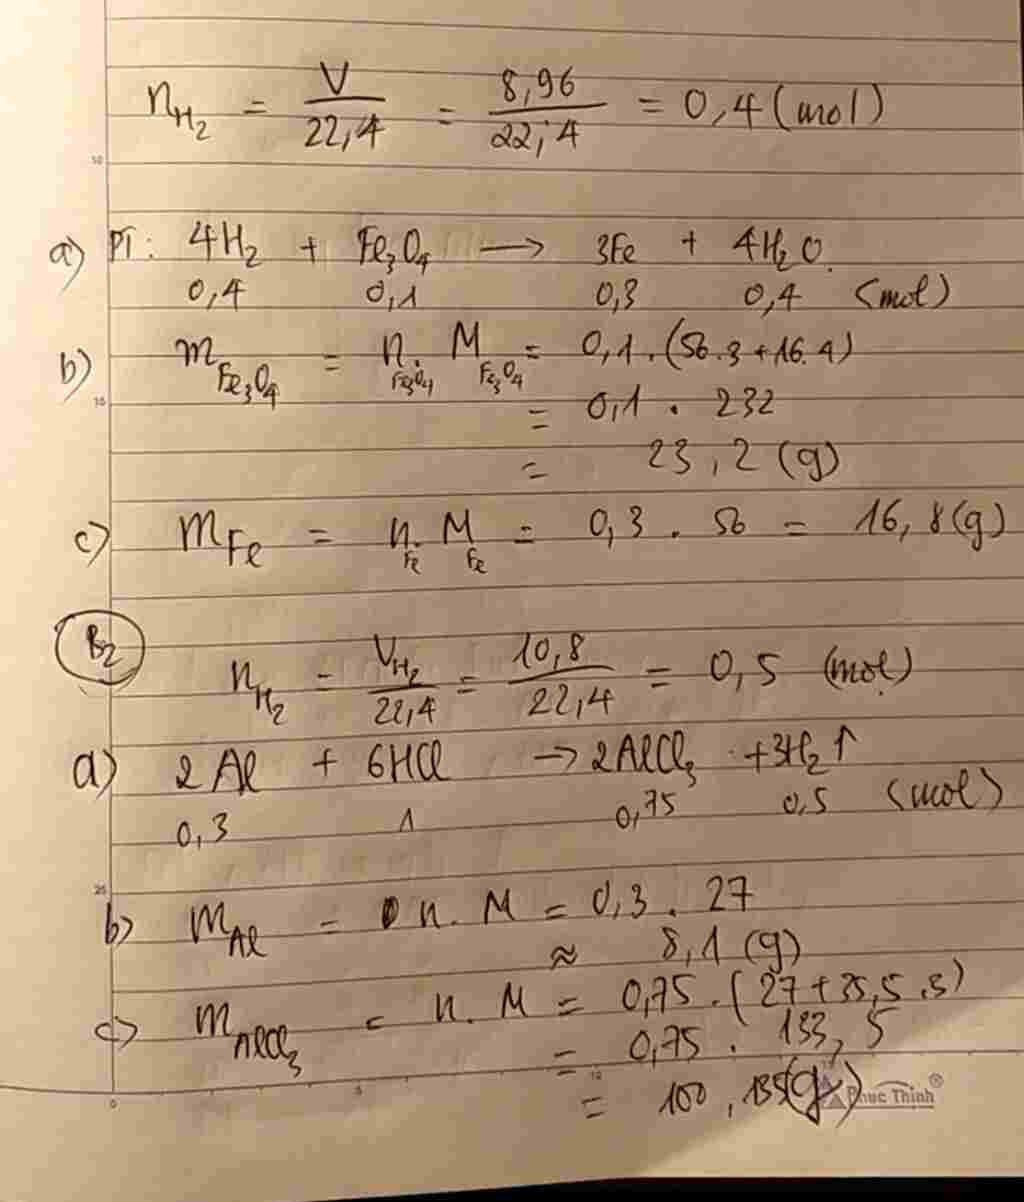 n_H₂ = V/22,4 = 8,96/22,4 = 0,4 (mol)
a) PT: 4H₂ + Fe₃O₄ → 3Fe + 4H₂O.
0,4 0,1 0,3 0,4 (mol)
b) m_Fe₃O₄ = n_Fe₃O₄ . M_Fe₃O₄ = 0,1 . (56.3+16.4)
= 0,1 . 232
= 23,2 (g)
c) m_Fe = n_Fe . M_Fe = 0,3 . 56 = 16,8(g)
B2
n_H₂ = V_H₂/22,4 = 10,8/22,4 = 0,5 (mol)
a) 2Al + 6HCl → 2AlCl₃ + 3H₂↑
0,3 1 0,75 0,5 (mol)
b) m_Al = n. M = 0,3 . 27
≈ 8,1 (g)
c) m_AlCl₃ = n. M = 0,75 . (27+35,5.3)
= 0,75 . 133,5
= 100, (g)
Phuc Thinh®